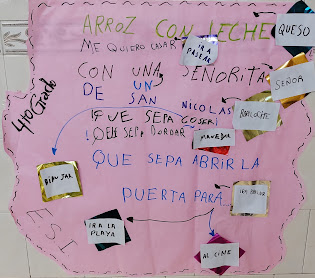 ARROZ CON LECHE
QUESO
ME QUIERO CASAR
IR A PASEAR
CON UNA SEÑORITA
SEÑOR
DE UN
SAN NICOLAS
BARILOCHE
4to Grado
QUE SEPA COSER
QUE SEPA BORDAR
QUE SEPA ABRIR LA
DIBUJAR
PUERTA PARA
IR A
IR A LA PLAYA
AL CINE
ESI